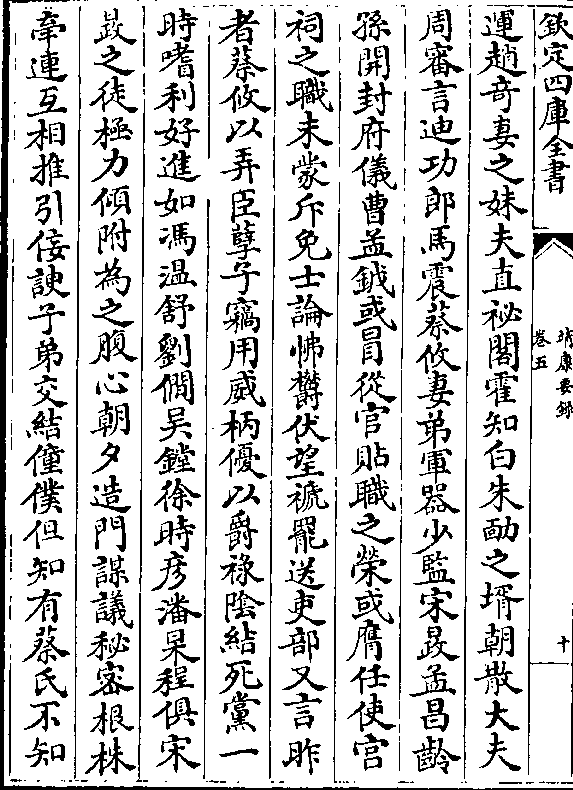 欽定四庫全書
靖康要錄
卷五
十
運趙奇妻之妹夫直祕閣霍知白朱勔之壻朝散大夫
周審言迪功郎馬震蔡攸妻弟軍器少監宋㬇孟昌齡
孫開封府儀曹孟鉞或冒從官貼職之榮或膺任使宫
祠之職未蒙斥免士論怫欝伏望褫罷送吏部又言昨
者蔡攸以弄臣孽子竊用威柄優以爵祿陰結死黨一
時嗜利好進如馮温舒劉僴吴鏜徐時彦潘杲程俱宋
㬇之徒極力傾附為之腹心朝夕造門謀議秘宻根株
牽連互相推引佞諛子弟交結僮僕但知有蔡氏不知